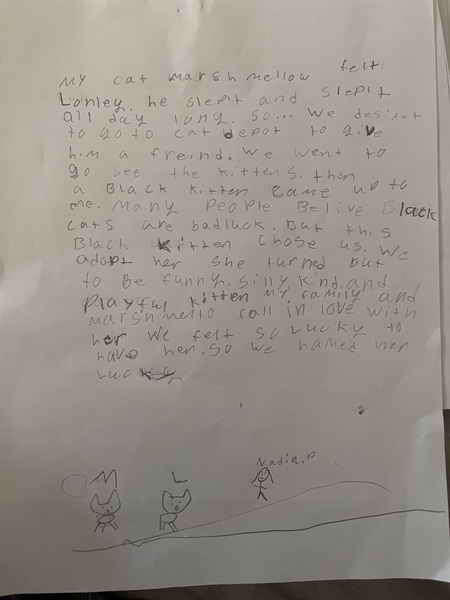 My cat marshmellow felt
Lonley. he slepit and slepit
all day long. so... we desidet
to go to cat depot to give
him a freind. we went to
go see the kittens. then
a Black kitten came up to
me. many people Belive Black
cats are badluck. But this
Black kitten chose us. we
adopt her she turned but
to Be funny. siny kind. and
Playful kitten my family and
marshmello fall in love with
her we felt so lucky to
have her. so we named her
Luc
M L Nadia.P